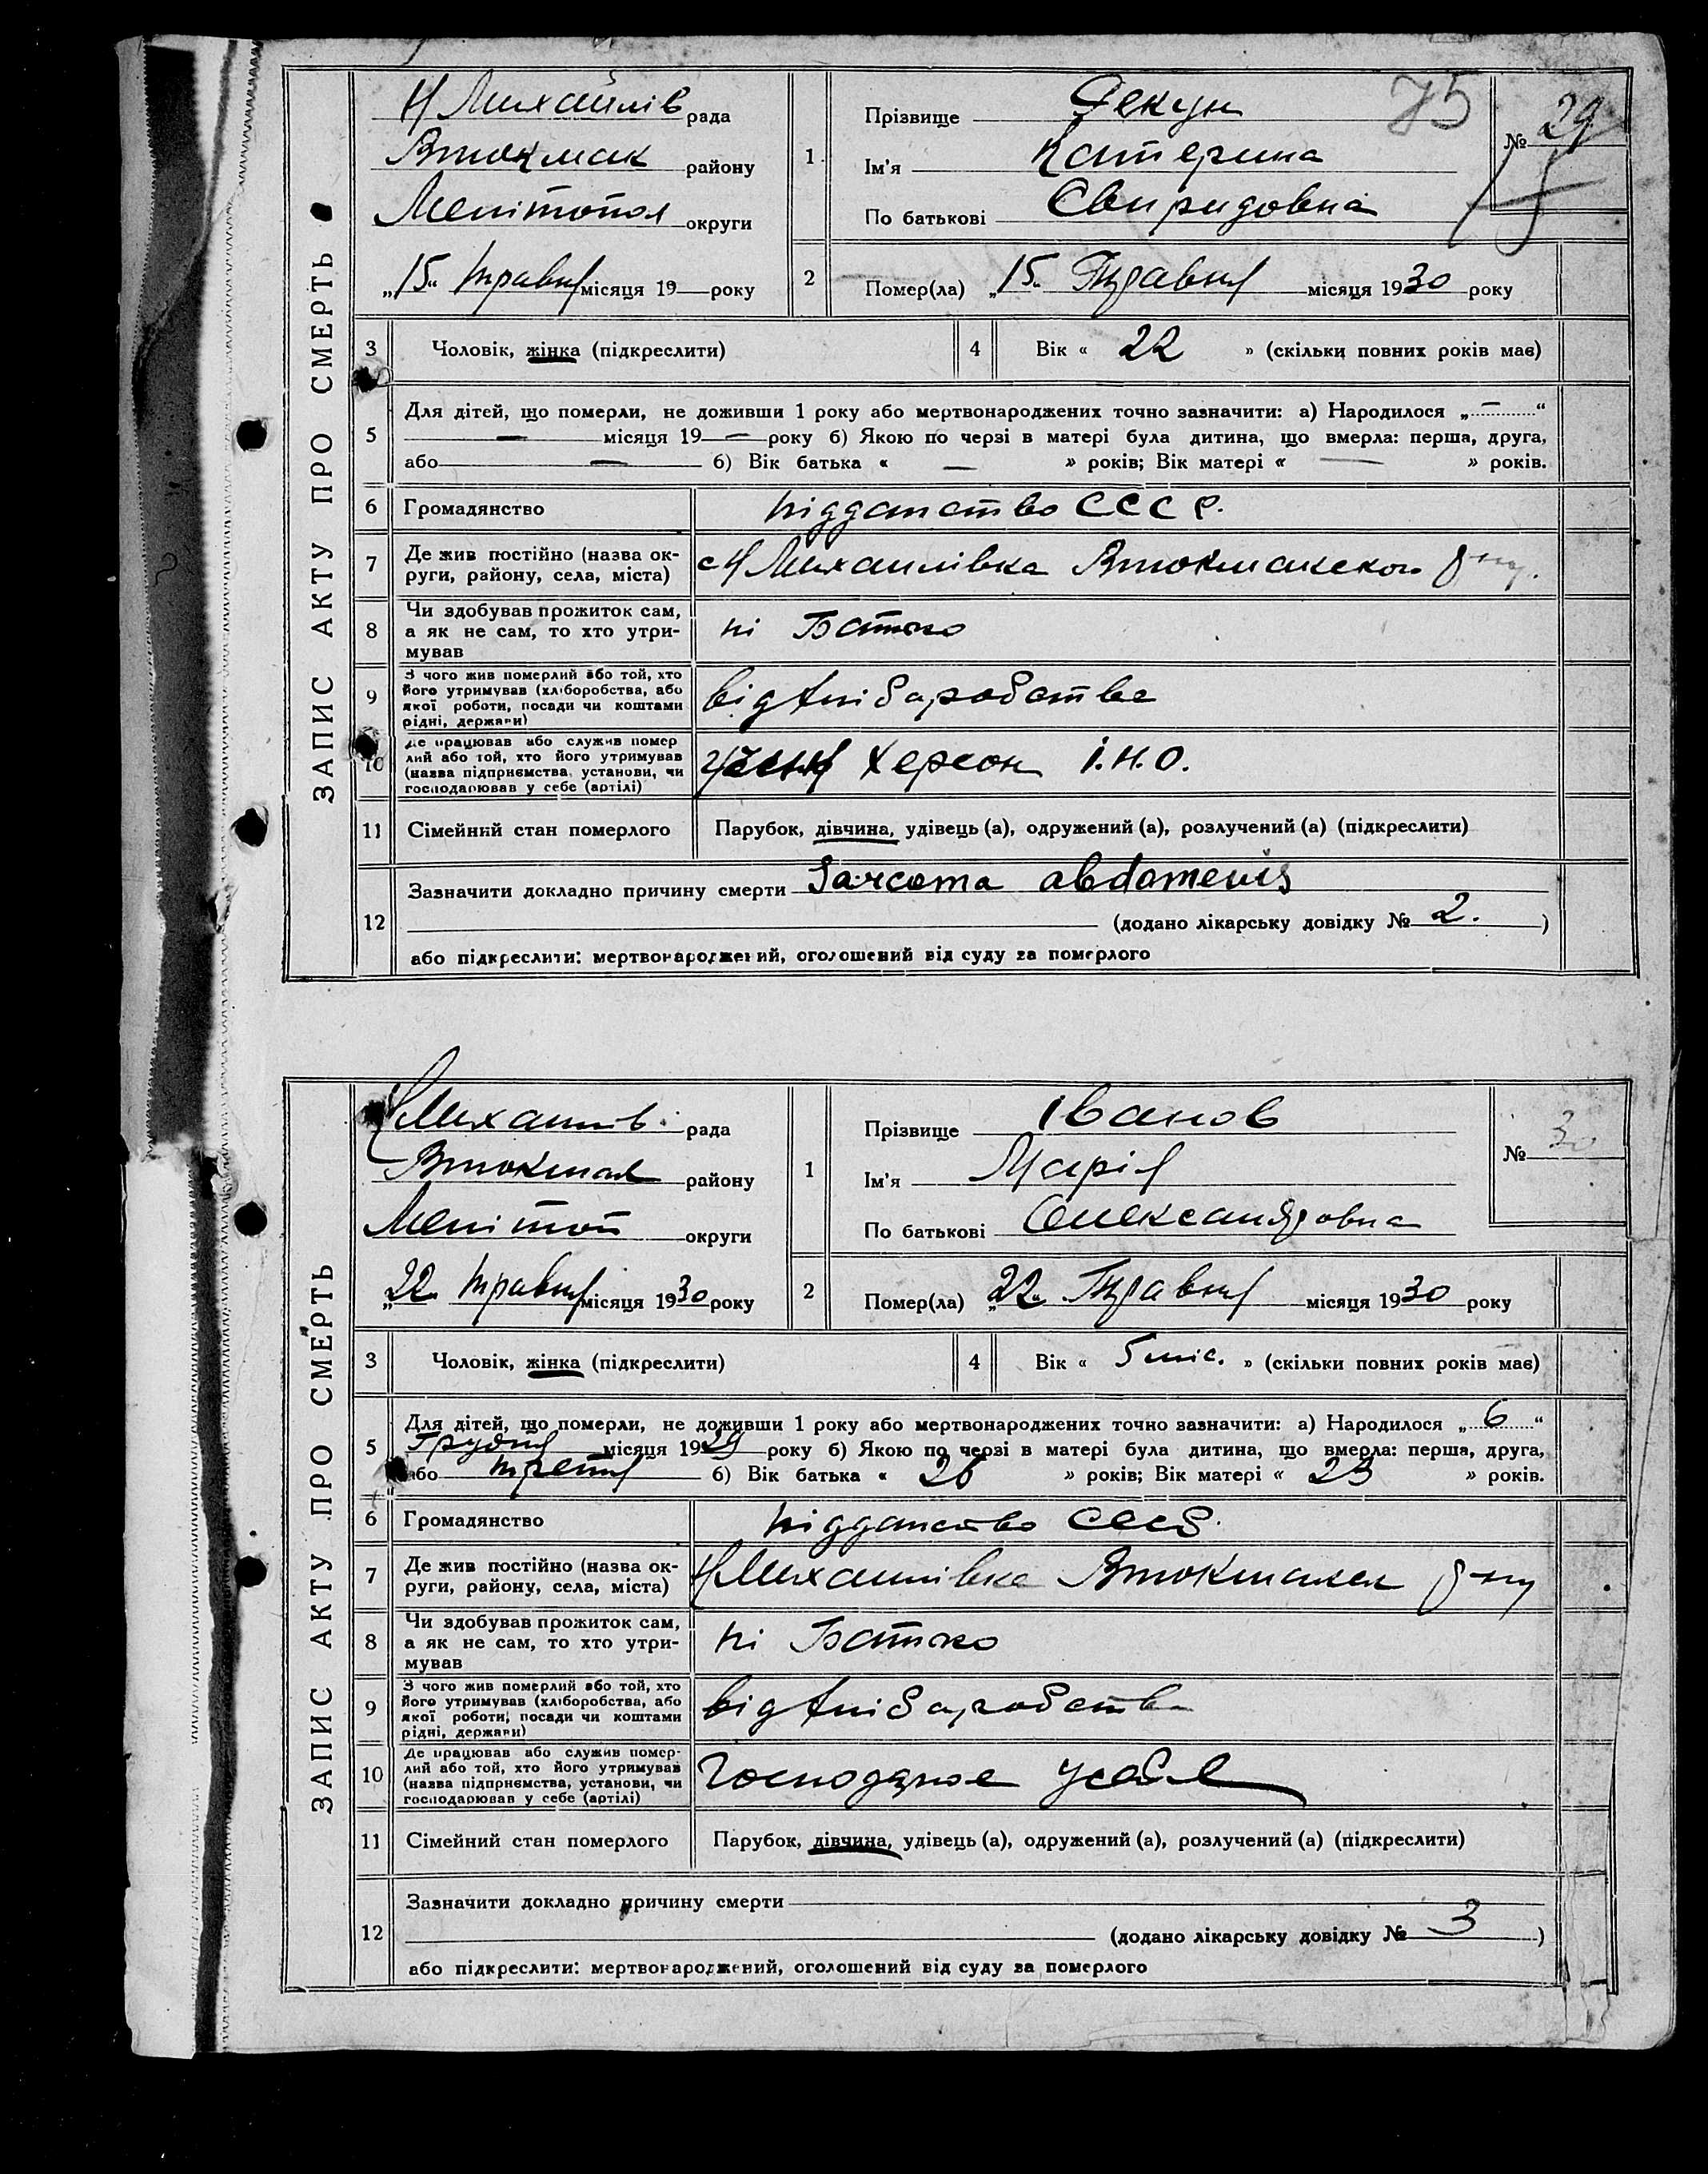 ЗАПИС АКТУ ПРО СМЕРТЬ
Н Михайлів рада
Втокмак району
Мелітопол округи
„15“ травня місяця 19 року
75
№ 29
1
Прізвище Секун
Ім'я Катерина
По батькові Свиридовна
2 Помер(ла) „15“ Травня місяця 1930 року
3 Чоловік, жінка (підкреслити)
4 Вік « 22 » (скільки повних років має)
5 Для дітей, що померли, не доживши 1 року або мертвонароджених точно зазначити: а) Народилося „ — “
— місяця 19 — року б) Якою по черзі в матері була дитина, що вмерла: перша, друга,
або — б) Вік батька « — » років; Вік матері « — » років.
6 Громадянство підданство СССР.
7 Де жив постійно (назва ок-
руги, району, села, міста) с Н Михайлівка Втокмакског р-ну.
8 Чи здобував прожиток сам,
а як не сам, то хто утри-
мував ні Батько
9 З чого жив померлий або той, хто
його утримував (хліборобства, або
якої роботи, посади чи коштами
рідні, держави) від хліборобства
10 Де працював або служив помер
лий або той, хто його утримував
(назва підприємства, установи, чи
господарював у себе (артілі) Херсон І.Н.О.
11 Сімейний стан померлого Парубок, дівчина, удівець (а), одружений (а), розлучений (а) (підкреслити)
12 Зазначити докладно причину смерти Sarcoma abdomenis
(додано лікарську довідку № 2. )
або підкреслити: мертвонароджений, оголошений від суду за померлого
ЗАПИС АКТУ ПРО СМЕРТЬ
Н Михайлів. рада
Втокмак району
Мелітоп округи
„22“ травня місяця 1930 року
№ 30
1
Прізвище Іванов
Ім'я Марія
По батькові Олександровна
2 Помер(ла) „22“ Травня місяця 1930 року
3 Чоловік, жінка (підкреслити)
4 Вік « 5 міс. » (скільки повних років має)
5 Для дітей, що померли, не доживши 1 року або мертвонароджених точно зазначити: а) Народилося „ 6 “
Грудня місяця 1929 року б) Якою по черзі в матері була дитина, що вмерла: перша, друга,
або третя б) Вік батька « 26 » років; Вік матері « 23 » років.
6 Громадянство підданство СССР.
7 Де жив постійно (назва ок-
руги, району, села, міста) Н Михайлівка Втокмакск р-ну
8 Чи здобував прожиток сам,
а як не сам, то хто утри-
мував ні Батько
9 З чого жив померлий або той, хто
його утримував (хліборобства, або
якої роботи, посади чи коштами
рідні, держави) від хліборобства
10 Де працював або служив помер-
лий або той, хто його утримував
(назва підприємства, установи, чи
господарював у себе (артілі) Господарює усебе
11 Сімейний стан померлого Парубок, дівчина, удівець (а), одружений (а), розлучений (а) (підкреслити)
12 Зазначити докладно причину смерти
(додано лікарську довідку № 3 )
або підкреслити: мертвонароджений, оголошений від суду за померлого